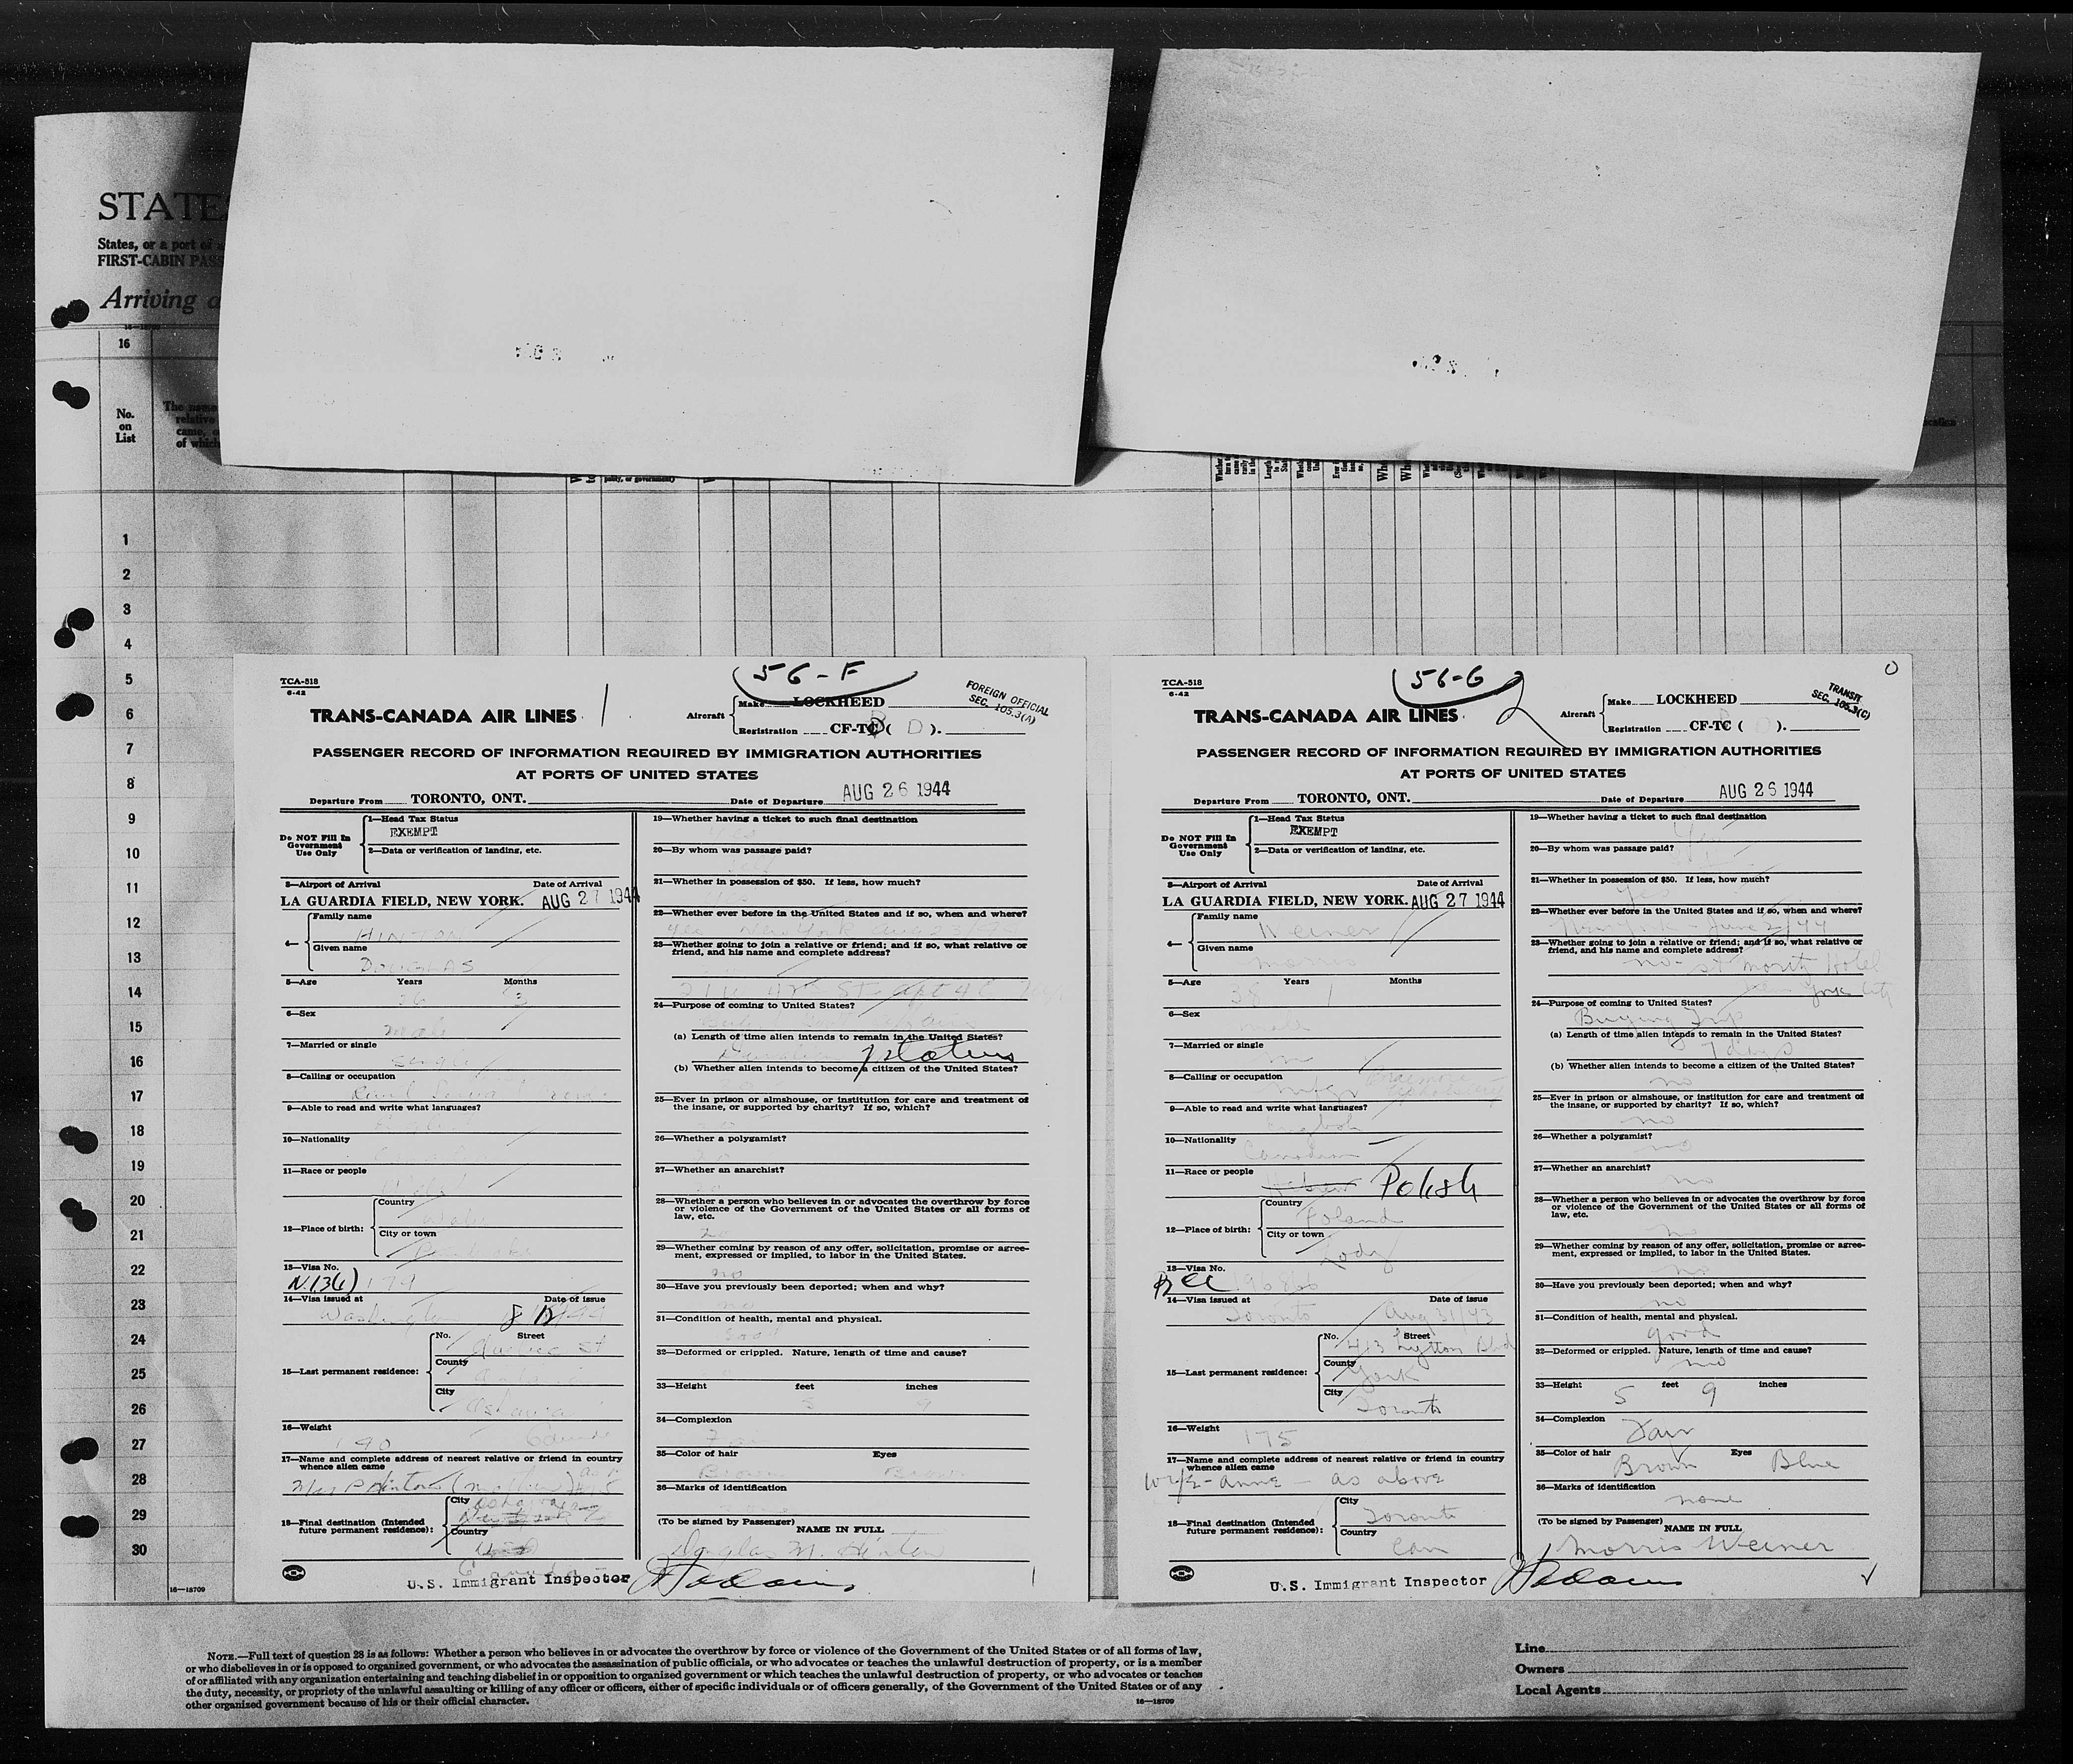 STATE
States, or a port of a
FIRST-CABIN PASS
Arriving a
16
No.
on
List
The name
relative
came, o
of which
1
2
3
4
5
6
7
8
9
10
11
12
13
14
15
16
17
18
19
20
21
22
23
24
25
26
27
28
29
30
16—18709
TCA-518
6-42
56-F
TRANS-CANADA AIR LINES 1
Aircraft
Make LOCKHEED
Registration CF-TC ( D ).
FOREIGN OFFICIAL
SEC. 105.3(A)
PASSENGER RECORD OF INFORMATION REQUIRED BY IMMIGRATION AUTHORITIES
AT PORTS OF UNITED STATES
Departure From TORONTO, ONT. Date of Departure AUG 26 1944
Do NOT Fill In
Government
Use Only
1—Head Tax Status
EXEMPT
2—Data or verification of landing, etc.
3—Airport of Arrival Date of Arrival
LA GUARDIA FIELD, NEW YORK. AUG 27 1944
4—
Family name
HINTON
Given name
DOUGLAS
5—Age Years Months
36 3
6—Sex
male
7—Married or single
Single
8—Calling or occupation
9—Able to read and write what languages?
10—Nationality
11—Race or people
12—Place of birth:
Country
Wales
City or town
Pembroke
13—Visa No.
N.13(6) 179
14—Visa issued at Date of issue
Washington
15—Last permanent residence:
No. Street
Quebec St
County
City
Oshawa
16—Weight
190
17—Name and complete address of nearest relative or friend in country
whence alien came
Mrs P Hinton (mother)
18—Final destination (Intended
future permanent residence):
City
Oshawa
Country
Canada
19—Whether having a ticket to such final destination
20—By whom was passage paid?
21—Whether in possession of $50. If less, how much?
22—Whether ever before in the United States and if so, when and where?
yes New York
23—Whether going to join a relative or friend; and if so, what relative or
friend, and his name and complete address?
24—Purpose of coming to United States?
(a) Length of time alien intends to remain in the United States?
Duration status
(b) Whether alien intends to become a citizen of the United States?
25—Ever in prison or almshouse, or institution for care and treatment of
the insane, or supported by charity? If so, which?
26—Whether a polygamist?
27—Whether an anarchist?
28—Whether a person who believes in or advocates the overthrow by force
or violence of the Government of the United States or all forms of
law, etc.
no
29—Whether coming by reason of any offer, solicitation, promise or agree-
ment, expressed or implied, to labor in the United States.
no
30—Have you previously been deported; when and why?
no
31—Condition of health, mental and physical.
good
32—Deformed or crippled. Nature, length of time and cause?
33—Height feet inches
5 9
34—Complexion
35—Color of hair Eyes
Brown Brown
36—Marks of identification
(To be signed by Passenger)
NAME IN FULL
Douglas M. Hinton
U.S. Immigrant Inspector
TCA-518
6-42
56-G
TRANS-CANADA AIR LINES 2
Aircraft
Make LOCKHEED
Registration CF-TC ( ).
TRANSIT
SEC. 105.3(C)
PASSENGER RECORD OF INFORMATION REQUIRED BY IMMIGRATION AUTHORITIES
AT PORTS OF UNITED STATES
Departure From TORONTO, ONT. Date of Departure AUG 26 1944
Do NOT Fill In
Government
Use Only
1—Head Tax Status
EXEMPT
2—Data or verification of landing, etc.
3—Airport of Arrival Date of Arrival
LA GUARDIA FIELD, NEW YORK. AUG 27 1944
4—
Family name
Weiner
Given name
Morris
5—Age Years Months
38 1
6—Sex
male
7—Married or single
m
8—Calling or occupation
mfgr
9—Able to read and write what languages?
English
10—Nationality
Canadian
11—Race or people
Hebrew Polish
12—Place of birth:
Country
Poland
City or town
Lodz
13—Visa No.
BCC
14—Visa issued at Date of issue
Toronto Aug 31/43
15—Last permanent residence:
No. Street
413 Lytton Blvd
County
York
City
Toronto
16—Weight
175
17—Name and complete address of nearest relative or friend in country
whence alien came
wife-anne - as above
18—Final destination (Intended
future permanent residence):
City
Toronto
Country
Can
19—Whether having a ticket to such final destination
Yes
20—By whom was passage paid?
21—Whether in possession of $50. If less, how much?
Yes
22—Whether ever before in the United States and if so, when and where?
New York June 2/44
23—Whether going to join a relative or friend; and if so, what relative or
friend, and his name and complete address?
no - St Moritz Hotel
New York City
24—Purpose of coming to United States?
Buying Trip
(a) Length of time alien intends to remain in the United States?
7 days
(b) Whether alien intends to become a citizen of the United States?
no
25—Ever in prison or almshouse, or institution for care and treatment of
the insane, or supported by charity? If so, which?
no
26—Whether a polygamist?
no
27—Whether an anarchist?
no
28—Whether a person who believes in or advocates the overthrow by force
or violence of the Government of the United States or all forms of
law, etc.
no
29—Whether coming by reason of any offer, solicitation, promise or agree-
ment, expressed or implied, to labor in the United States.
no
30—Have you previously been deported; when and why?
no
31—Condition of health, mental and physical.
good
32—Deformed or crippled. Nature, length of time and cause?
no
33—Height feet inches
5 9
34—Complexion
Fair
35—Color of hair Eyes
Brown Blue
36—Marks of identification
none
(To be signed by Passenger)
NAME IN FULL
Morris Weiner
U.S. Immigrant Inspector
NOTE.—Full text of question 28 is as follows: Whether a person who believes in or advocates the overthrow by force or violence of the Government of the United States or of all forms of law,
or who disbelieves in or is opposed to organized government, or who advocates the assassination of public officials, or who advocates or teaches the unlawful destruction of property, or is a member
of or affiliated with any organization entertaining and teaching disbelief in or opposition to organized government or which teaches the unlawful destruction of property, or who advocates or teaches
the duty, necessity, or propriety of the unlawful assaulting or killing of any officer or officers, either of specific individuals or of officers generally, of the Government of the United States or of any
other organized government because of his or their official character.
16—18709
Line
Owners
Local Agents